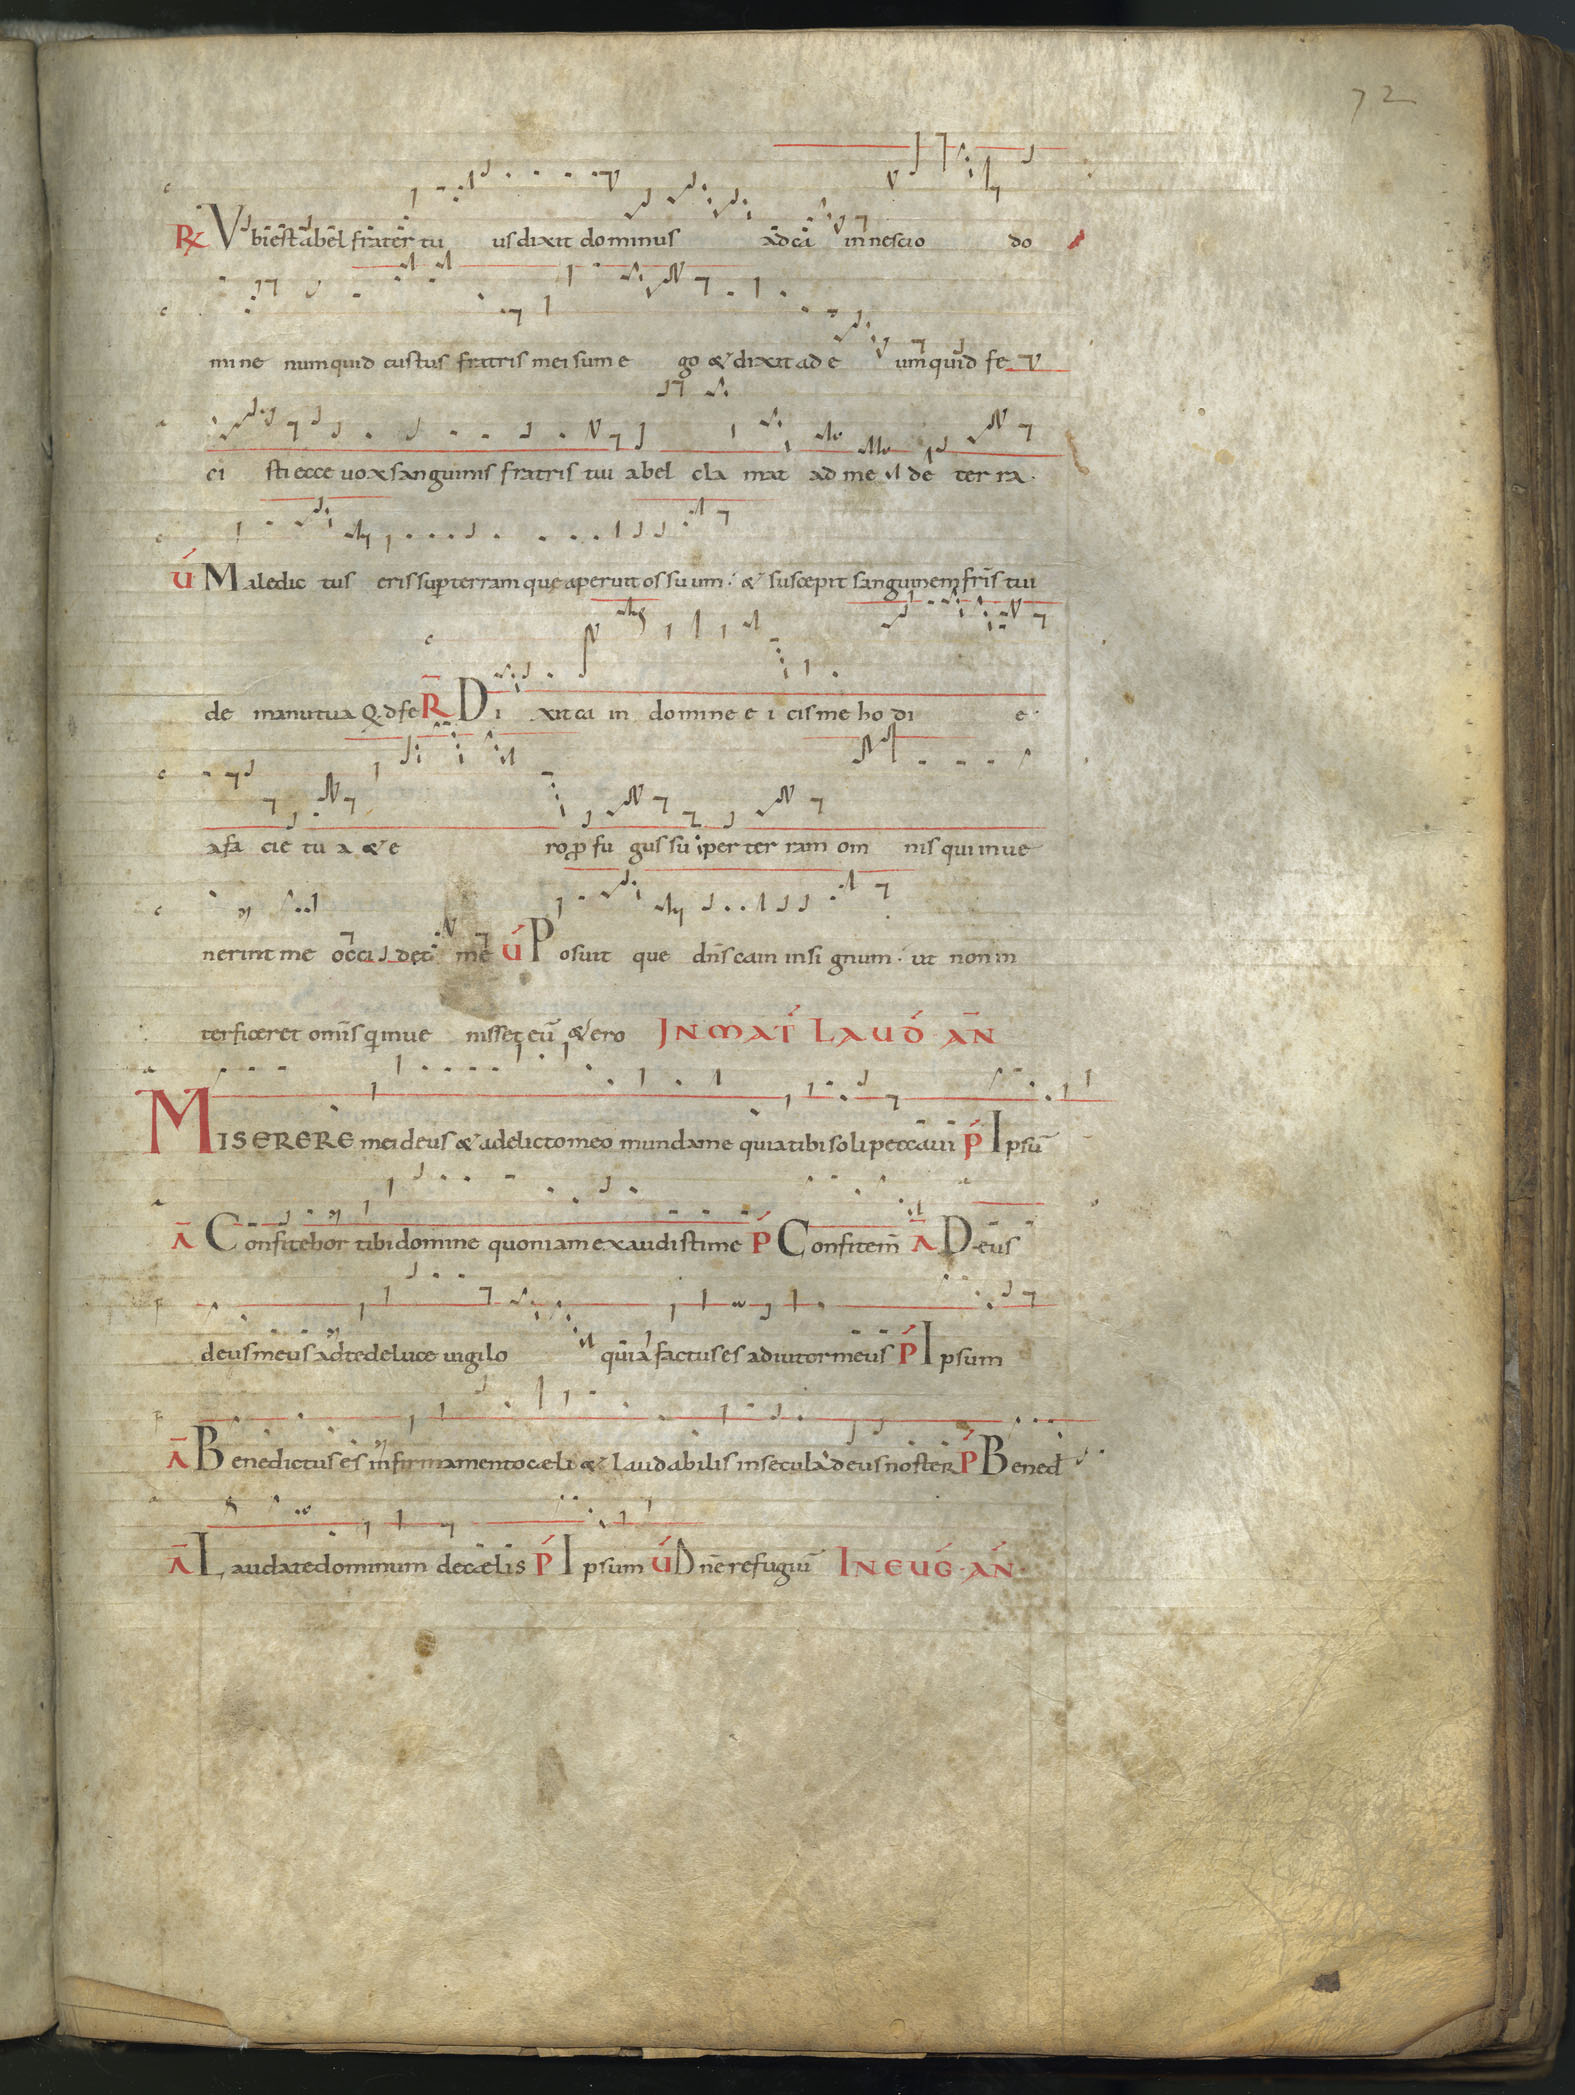 72
R Vbi est abel frater tu us dixit dominus ad cai in nescio do
mine numquid custus fratris mei sum e go & dixit ad e um quid fe
ci sti ecce uox sanguinis fratris tui abel cla mat ad me de ter ra.
V Maledic tus eris sup terram que aperuit os suum. & suscepit sanguinem fris tui
de manu tua Q d fe R Di xit cai in domine e i cis me ho di e.
a fa cie tu a & e ro p fu gus su per ter ram om nis qui inue
nerint me occi det me V Posuit que dns cain insi gnum. ut non in
terficeret omis q inue nisset eu & ero IN MAT LAUD AN
MISERERE mei deus & a delicto meo munda me quia tibi soli peccaui P Ipsu
A Confitebor tibi domine quoniam exaudisti me P Confitem A Deus
deus meus ad te de luce uigilo quia factus es adiutor meus P Ipsum
A Benedictus es in firmamento cæli & laudabilis in secula deus noster P Bened
A Laudate dominum de cælis P Ipsum V Dne refugiu IN EUG. AN